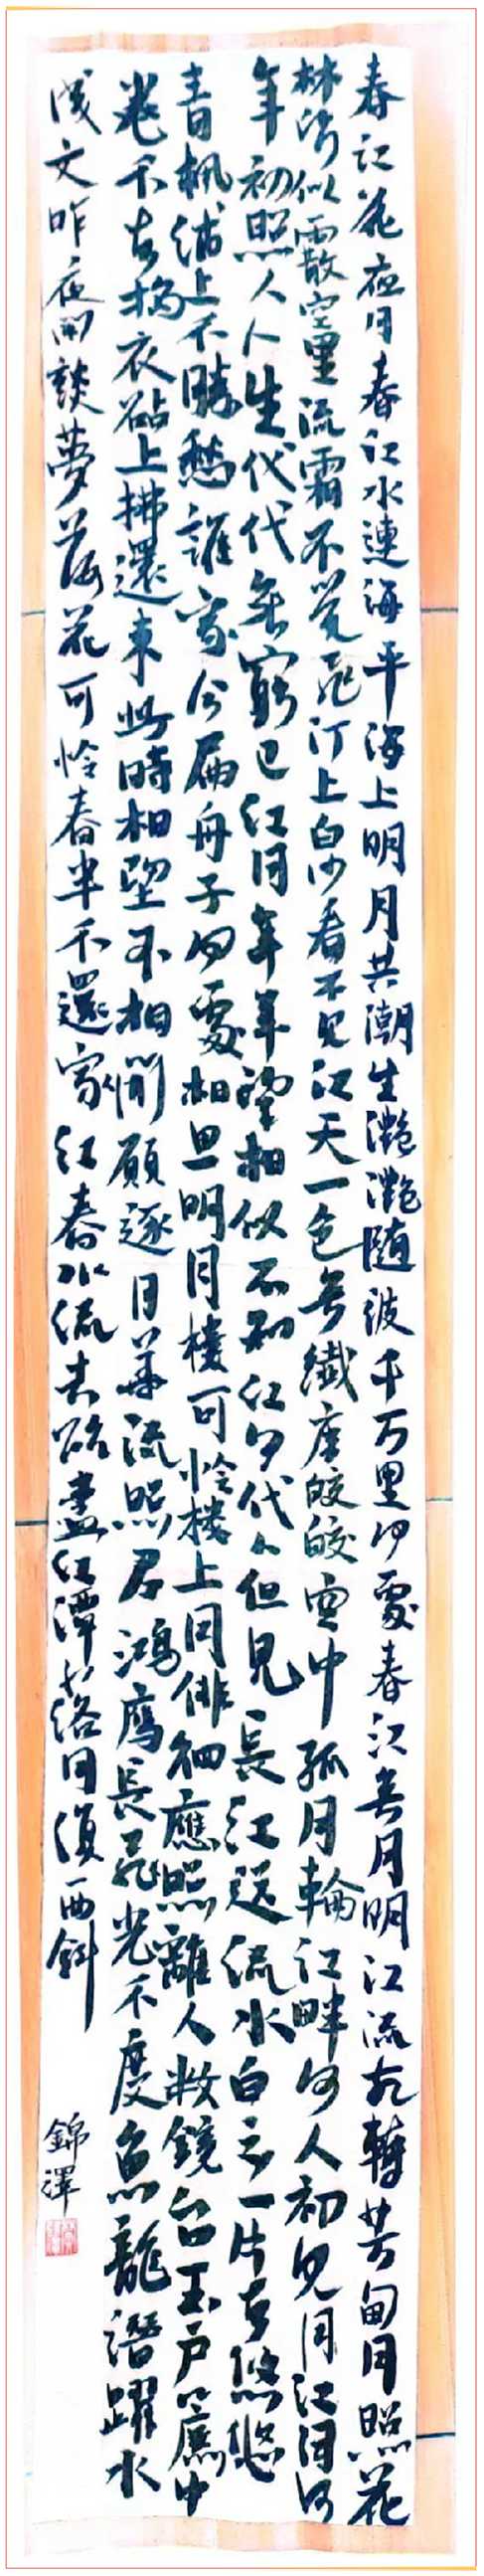 春江花夜月春江水連海平海上明月共潮生灧灧随波千万里何處春江無月明江流宛轉芳甸月照花
林皆似霰空里流霜不覺飛汀上白沙看不見江天一色無纖塵皎皎空中孤月輪江畔何人初見月江月何
年初照人人生代代無窮已江月年年望相似不知江月代人但見長江送流水白云一片去悠悠
青楓浦上不勝愁誰家今扁舟子何處相思明月樓可怜楼上月徘徊應照離人妝鏡台玉戶簾中
卷不去搗衣砧上拂還来此時相望不相聞願逐月華流照君鴻雁長飛光不度魚龍潛躍水
成文昨夜閑談夢落花可怜春半不還家江春水流去欲盡江潭落月復西斜
錦澤